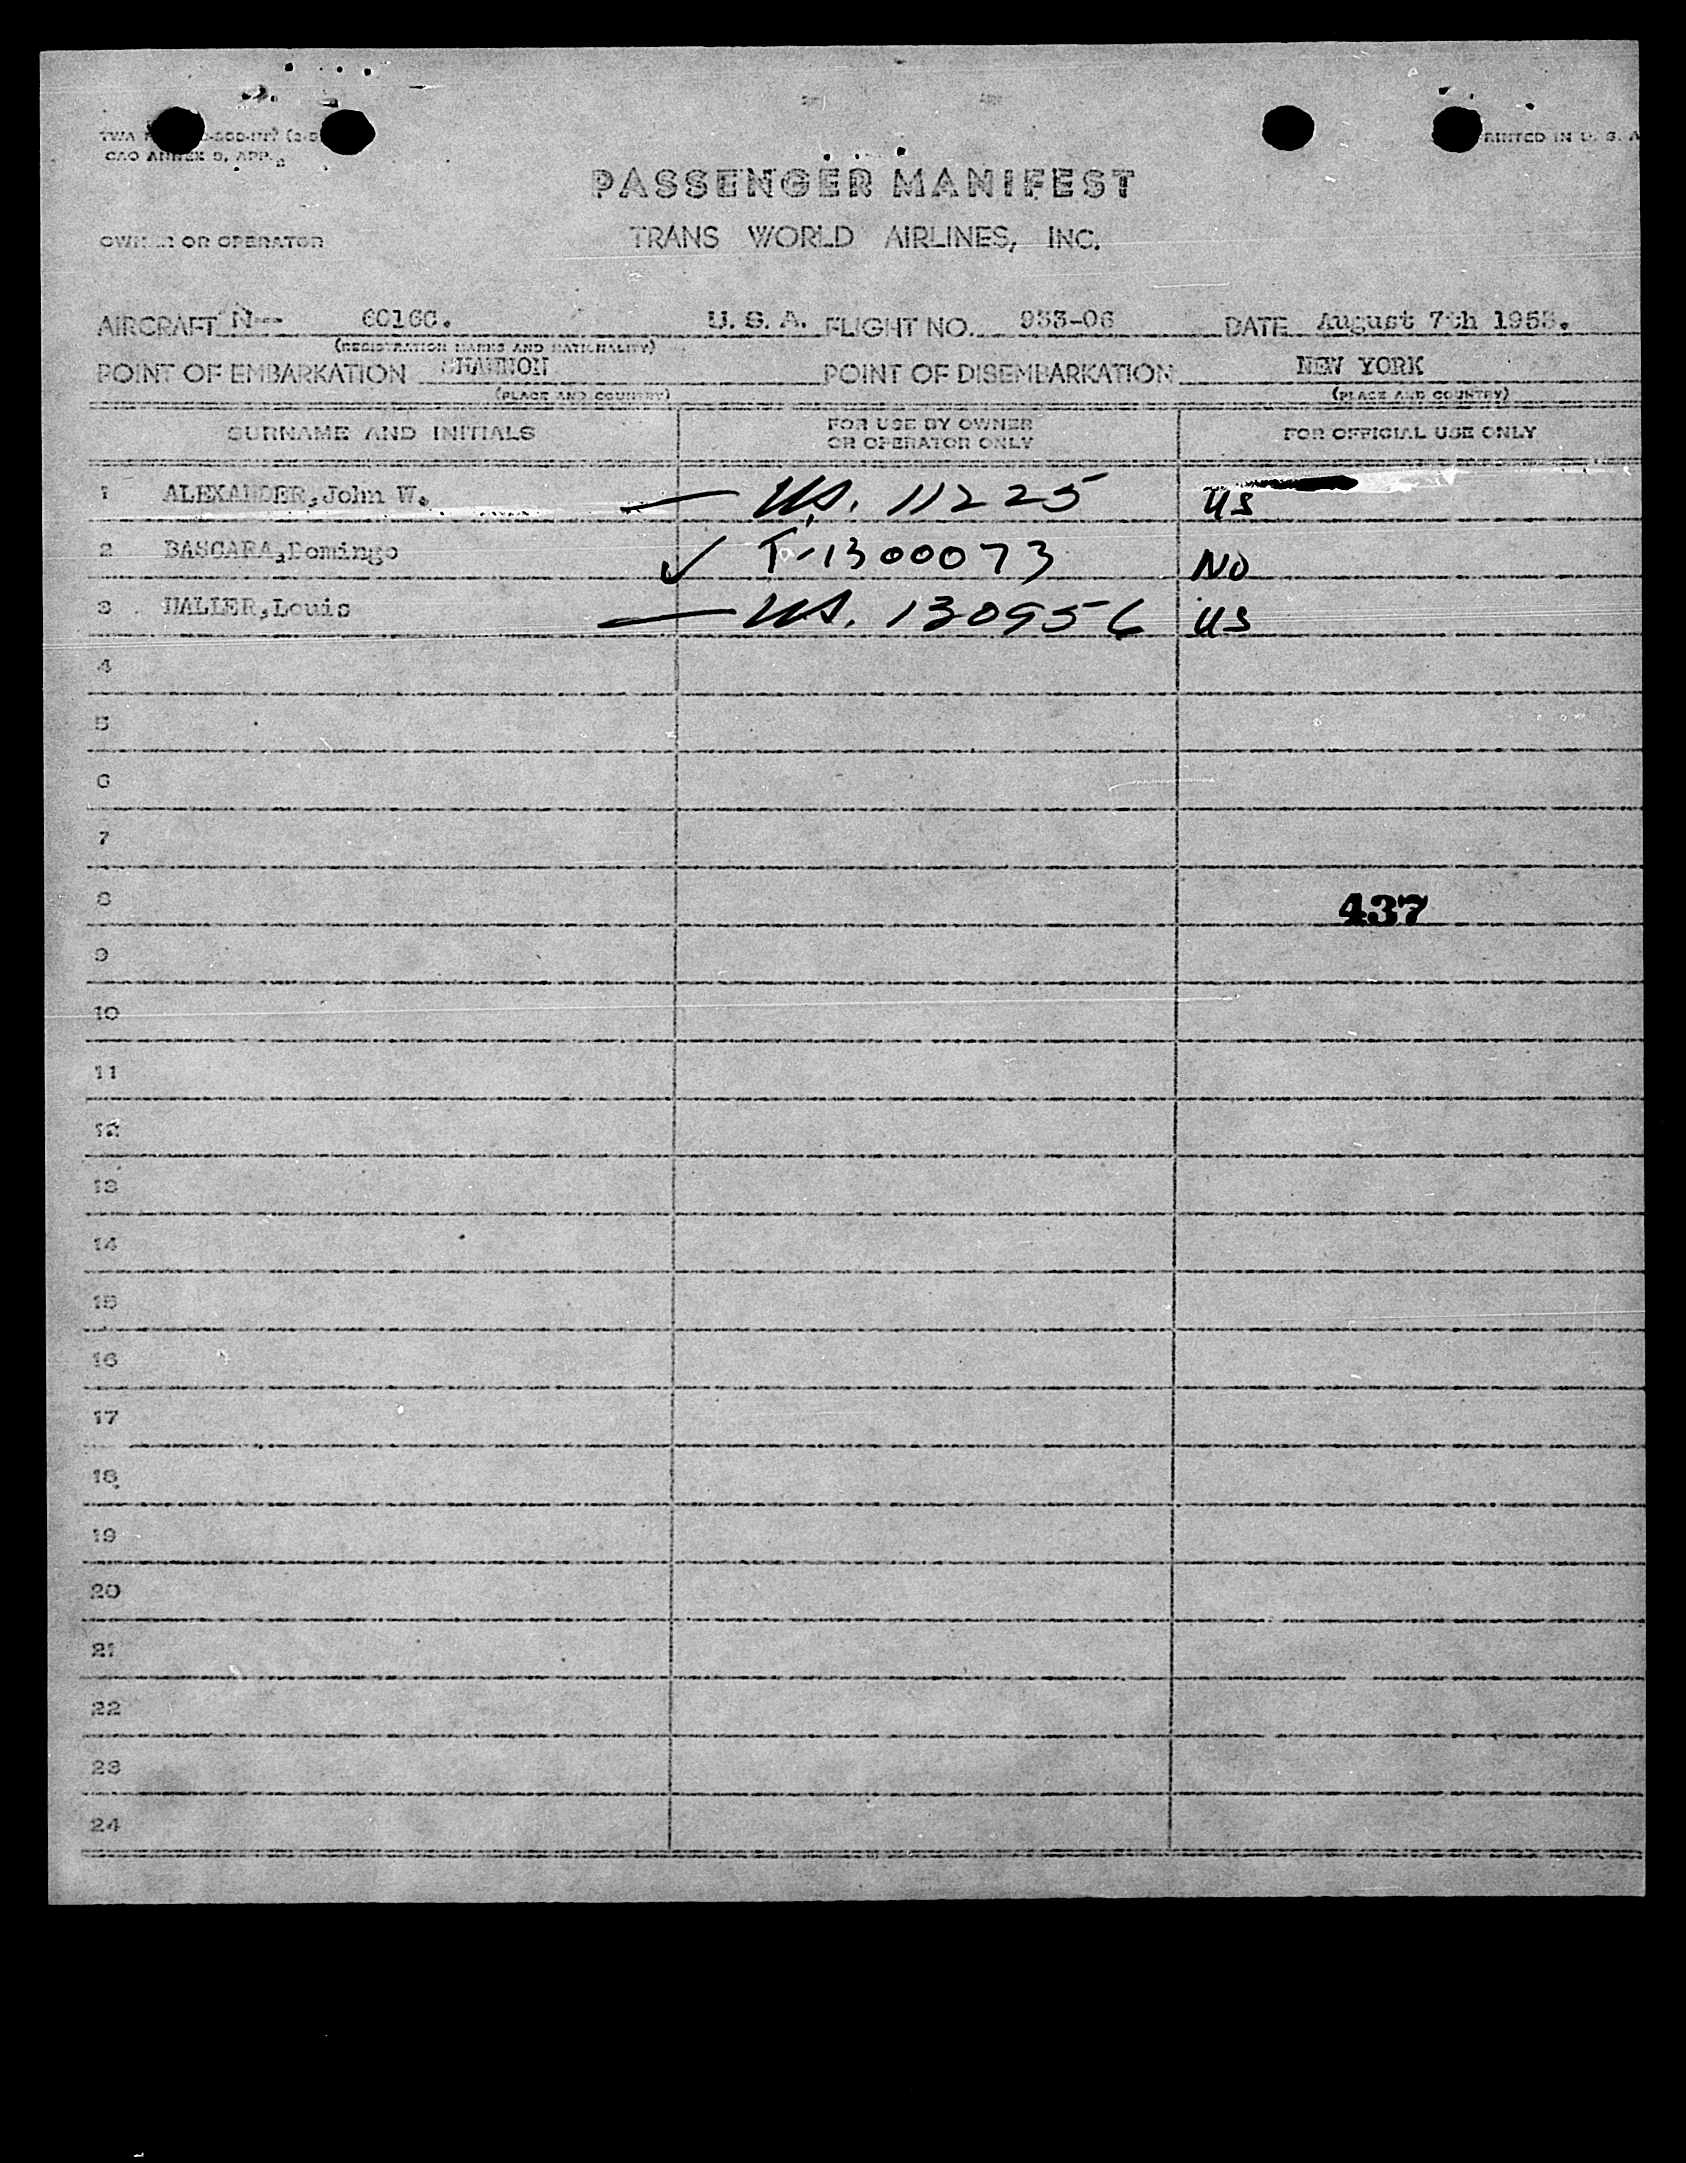 CAO ANNEX 9, APP.
PRINTED IN U. S. A
PASSENGER MANIFEST
OWNER OR OPERATOR TRANS WORLD AIRLINES, INC.
AIRCRAFT N-- 6016C. U. S. A. FLIGHT NO. 933-06 DATE August 7th 1953.
(REGISTRATION MARKS AND NATIONALITY)
POINT OF EMBARKATION SHANNON POINT OF DISEMBARKATION NEW YORK
(PLACE AND COUNTRY) (PLACE AND COUNTRY)
SURNAME AND INITIALS FOR USE BY OWNER OR OPERATOR ONLY FOR OFFICIAL USE ONLY
1 ALEXANDER,John W. — US. 11225 US
2 BASCARA,Domingo ✓ T-1300073 NO
3 HALLER,Louis — US. 130956 US
4
5
6
7
8 437
9
10
11
12
13
14
15
16
17
18
19
20
21
22
23
24